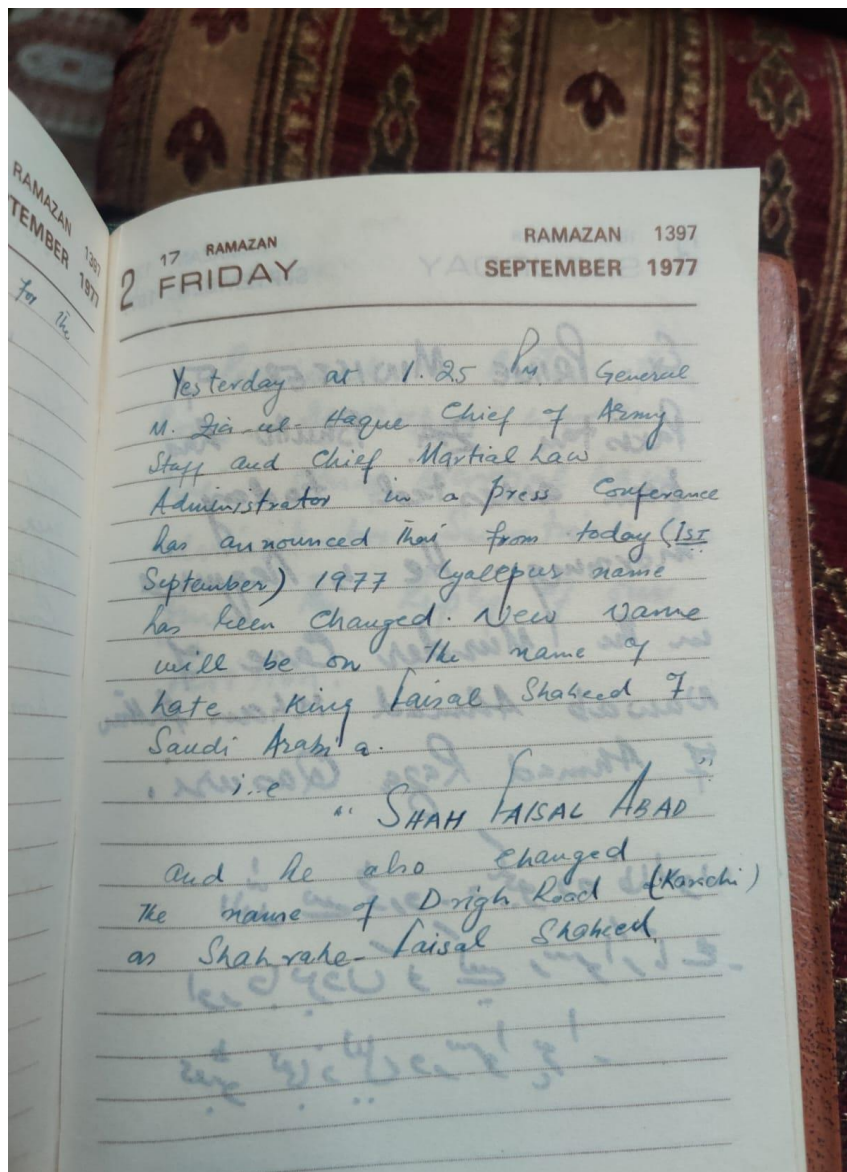 RAMAZAN 1397
TEMBER 1977
for the
17 RAMAZAN
2 FRIDAY
RAMAZAN 1397
SEPTEMBER 1977
Yesterday at 1.25 PM General
M. Zia-ul-Haque Chief of Army
Staff and Chief Martial Law
Administrator in a press Conferance
has announced that from today (1st
September) 1977 Lyallpur name
has been changed. New name
will be on the name of
Late King Faisal Shaheed of
Saudi Arabia.
i.e
" SHAH FAISAL ABAD "
and he also changed
the name of Drigh Road (Karachi)
as Shahrahe-Faisal Shaheed.